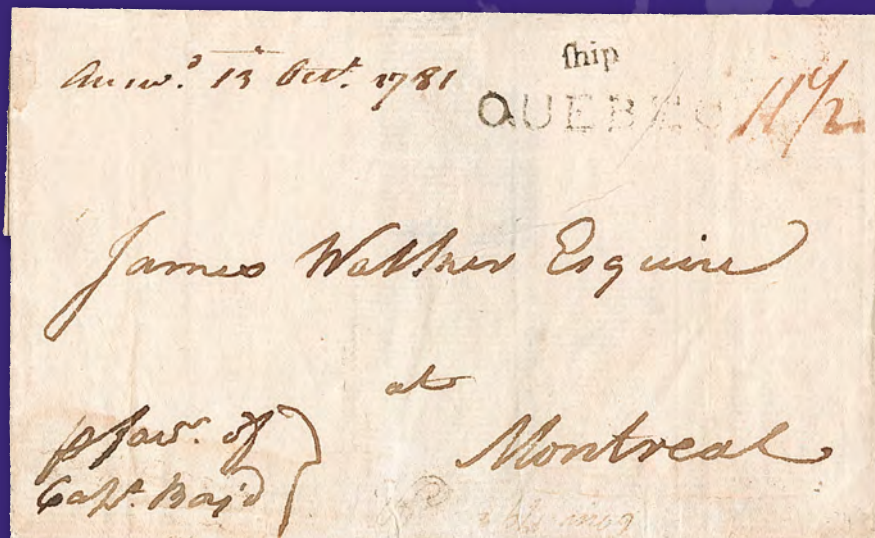 Answ.d 13 Oct. 1781
ship
QUEBEC 11 1/2
James Walker Esquire
at
Montreal
p favr. of
Capt. Boyd